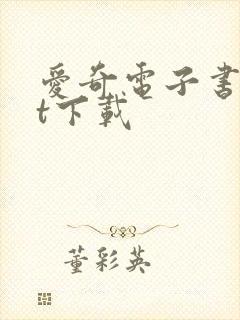 愛奇電子書
t下載
董彩英